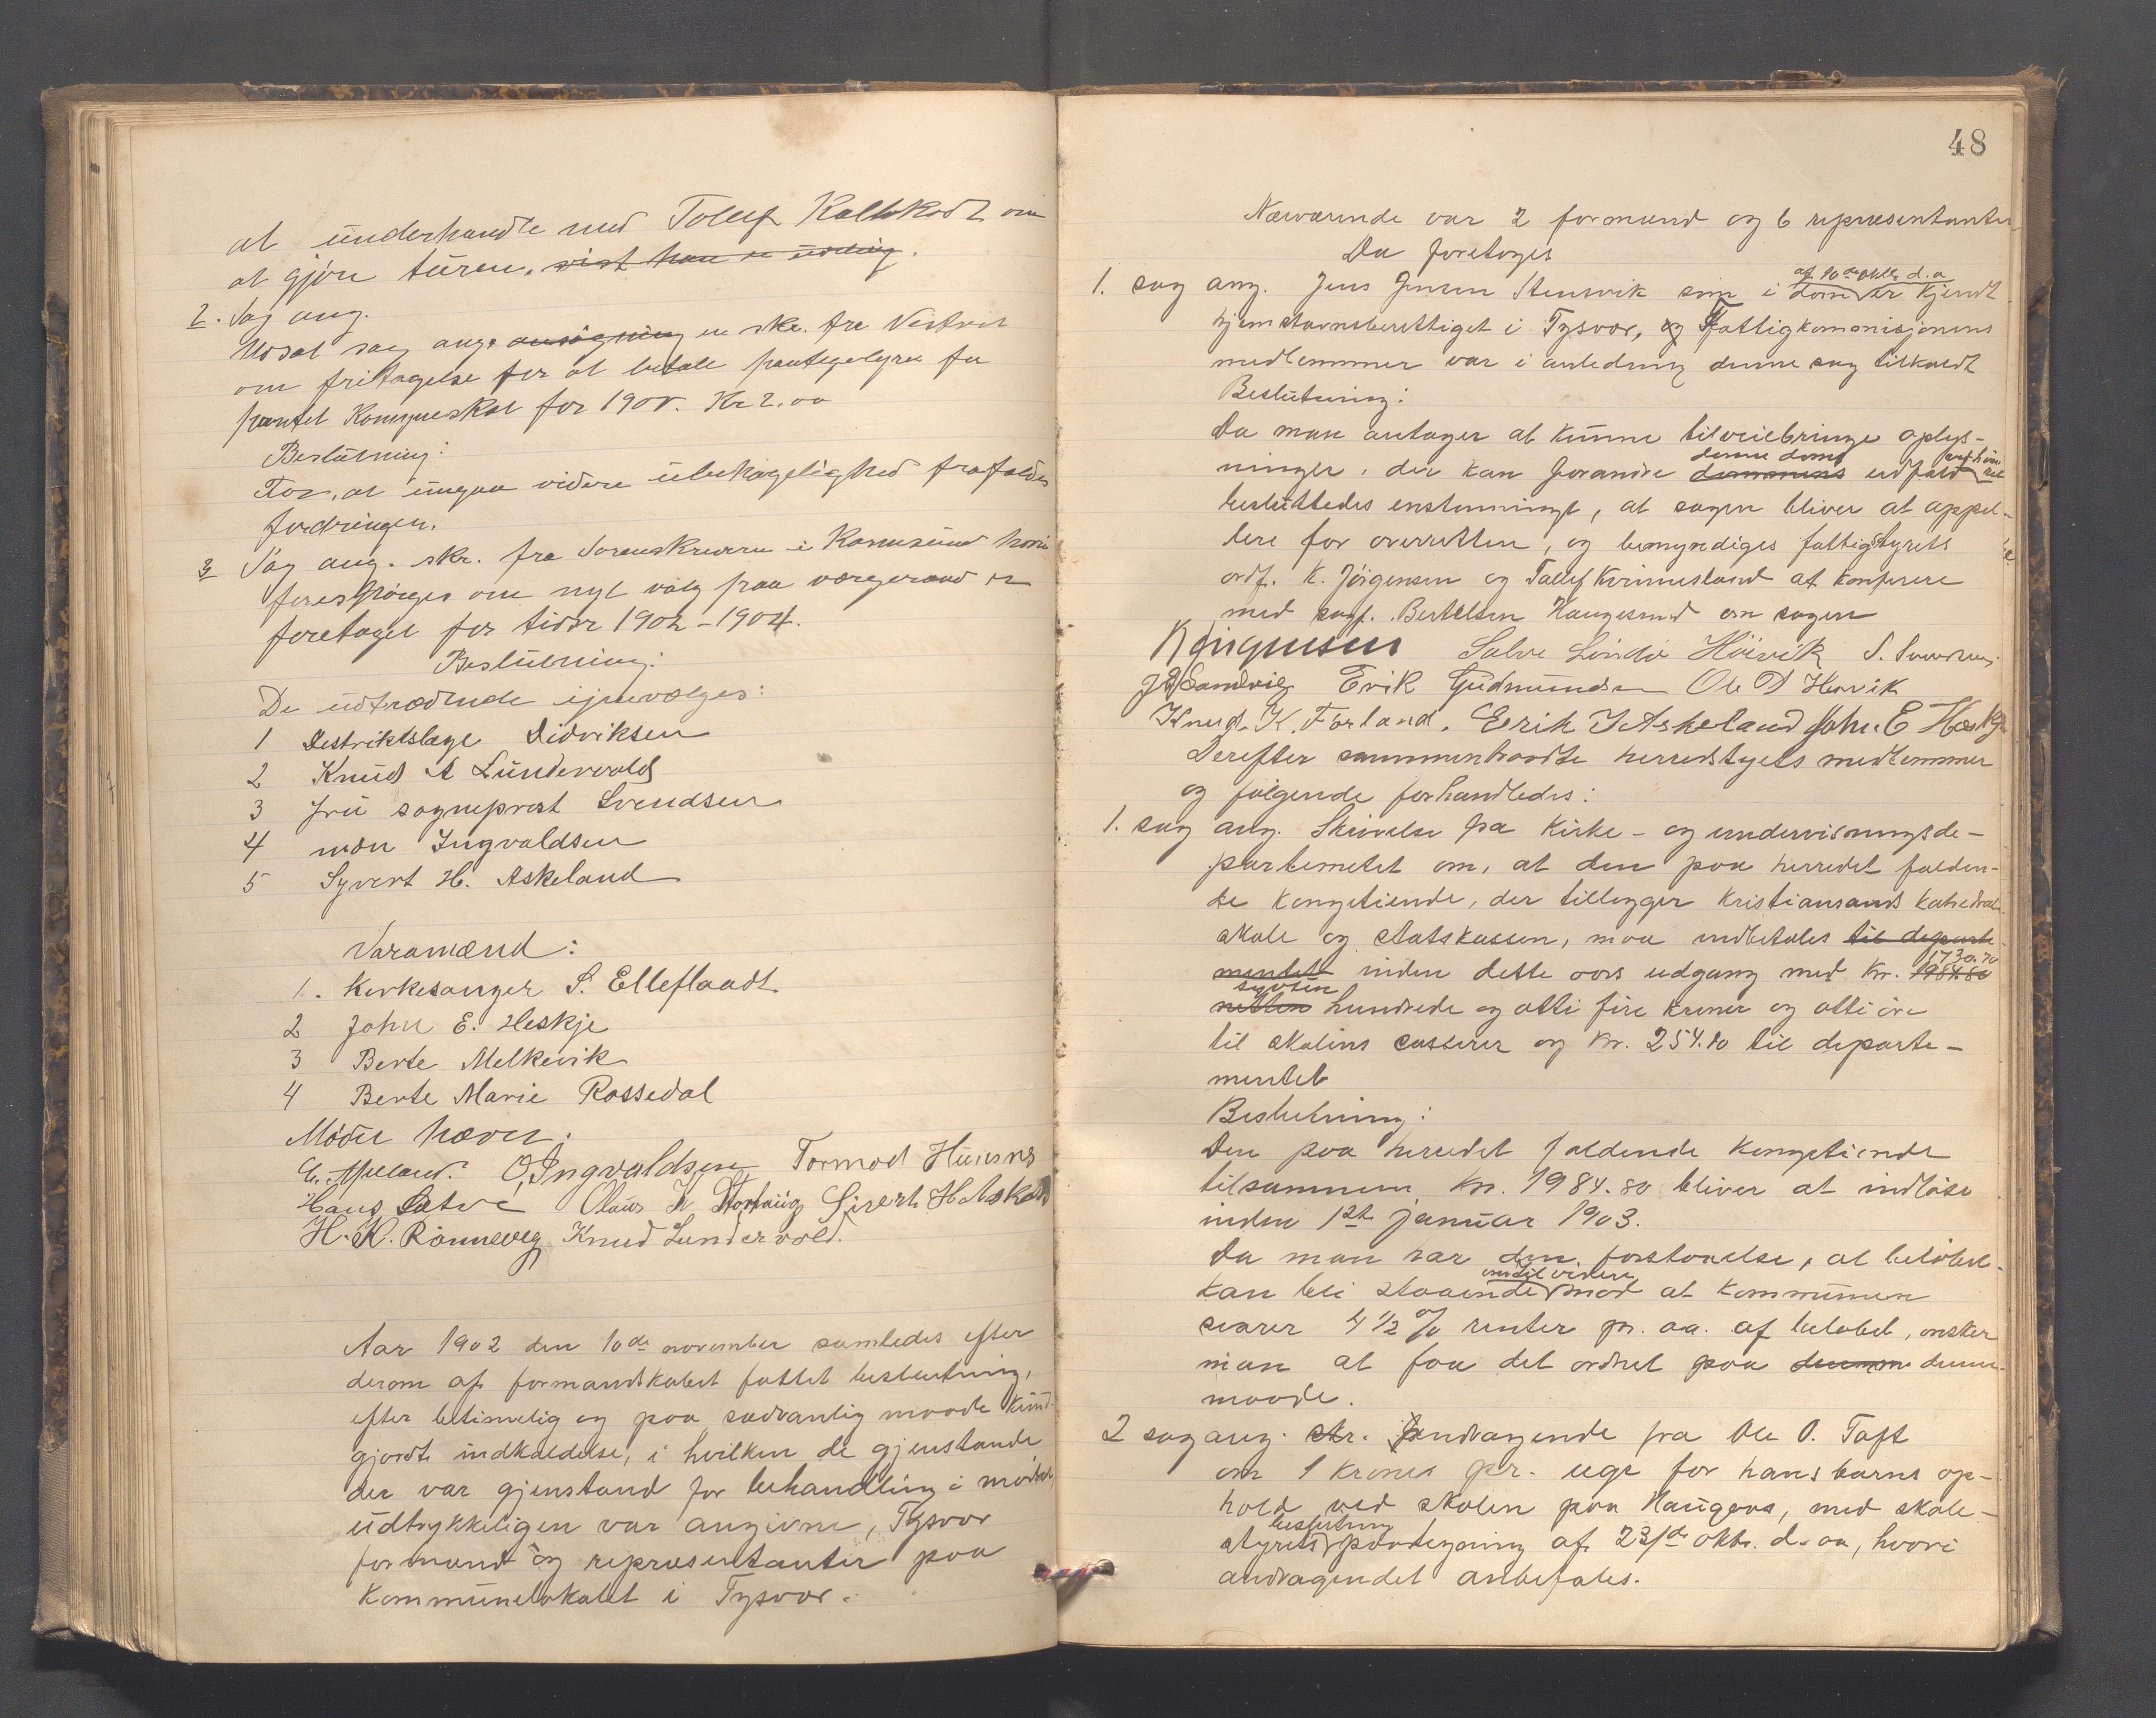 at underhandle med Tollef Kallekodt om
at gjöre turen. vist han er uvillig.
2. Sag ang.
Udsat sag ang. ansögning en skr. fra
om fritagelse for at betale pantegebyret for
pantet Kommuneskat for 190 . Kr 2.00
Beslutning:
For, at ungaa videre ubehagelighed frafaldes
fordringen.
3 Sag ang. skr. fra Sorenskriveren i Karmsund hvori
forespörges om nyt valg paa værgeraad er
foretaget for tiden 1902-1904.
Beslutning:
De udtrædende gjenvælges:
1 Destriktslæge Didriksen
2 Knud A Lundervold
3 Fru sogneprest Svendsen
4 mdm Ingvaldsen
5 Syvert H. Askeland
Varamænd:
1. Kirkesanger S. Elleflaadt
2 John E. Heskje
3 Berte Melkevik
4 Berte Marie Rossedal
Mödet hævet.
O. Ingvaldsen Tormod Huusnes
Hans Sætre Olaus K Stortuig Sivert H Askeland
H. K. Rönnevig Knud Lundervold.
Aar 1902 den 10de november samledes efter
derom af formandskabet fattet beslutning,
efter betimelig og paa sædvanlig maade kund-
gjordt indkaldelse, i hvilken de gjenstande
der var gjenstand for behandling i mödet,
udtrykkeligen var angivne, Tysvær
formand og repræsentanter paa
kommunelokalet i Tysvær.
48
Nærværende var 2 formænd og 6 repræsentanter
Da foretoges
af 10de oktbr d.a
1. sag ang. Jens Jensen Stensvik som i dom er kjendt
hjemstavnsberettiget i Tysvær, og Fattigkommisjonens
medlemmer var i anledning denne sag tilkaldt
Beslutning:
Da man antager at kunne tilveiebringe oplys-
denne doms
ninger, der kan forandre dommens udfald
besluttedes enstemmingt, at sagen bliver at appel-
lere for overretten, og bemyndiges fattigstyrets
ordf. K. Jörgensen og Tollef Kvinnesland at konferere
med sagf. Bertelsen Haugesund om sagen
K Jörgensen Salve Lindö Höievik S. Svendsen
J Sandvig Erik Gudmundsen Ole D Hervik
Knud. K. Førland. Eerik I Askeland John. E Heskje
Derefter sammentraadte herredstyets medlemmer
og fölgende forhandledes:
1. sag ang. Skrivelse fra Kirke- og undervisningsde-
partemetet om, at den paa herredet falden-
de kongetiende, der tillegger Kristiansands Kathedral-
skole og statskassen, maa indbetales til departe-
1730.70
mentet inden dette aars udgang med Kr. 1984.80
sytten
nitten hundrede og otti fire kroner og otti öre
til skolens casserer og Kr. 254.10 til departe-
mentet
Beslutning:
Den paa herredet faldende kongetiende
tilsammen Kr. 1984.80 bliver at indlöse
inden 1ste januar 1903.
Da man har den forstaaelse, at belöbet
indtil videre
kan bli staaende mod at kommunen
svarer 4 1/2 % renter pr. aa. af belöbet, önsker
man at faa det ordnet paa denne
maade.
2 sag ang. skr. Andragende fra Ole O. Toft
om 1 krones pr. uge for hans barns op-
hold ved skolen paa Haugeva, med skole-
beslutning
styrets paategning af 23/de oktbr. d. aa, hvori
andragendet anbefales.